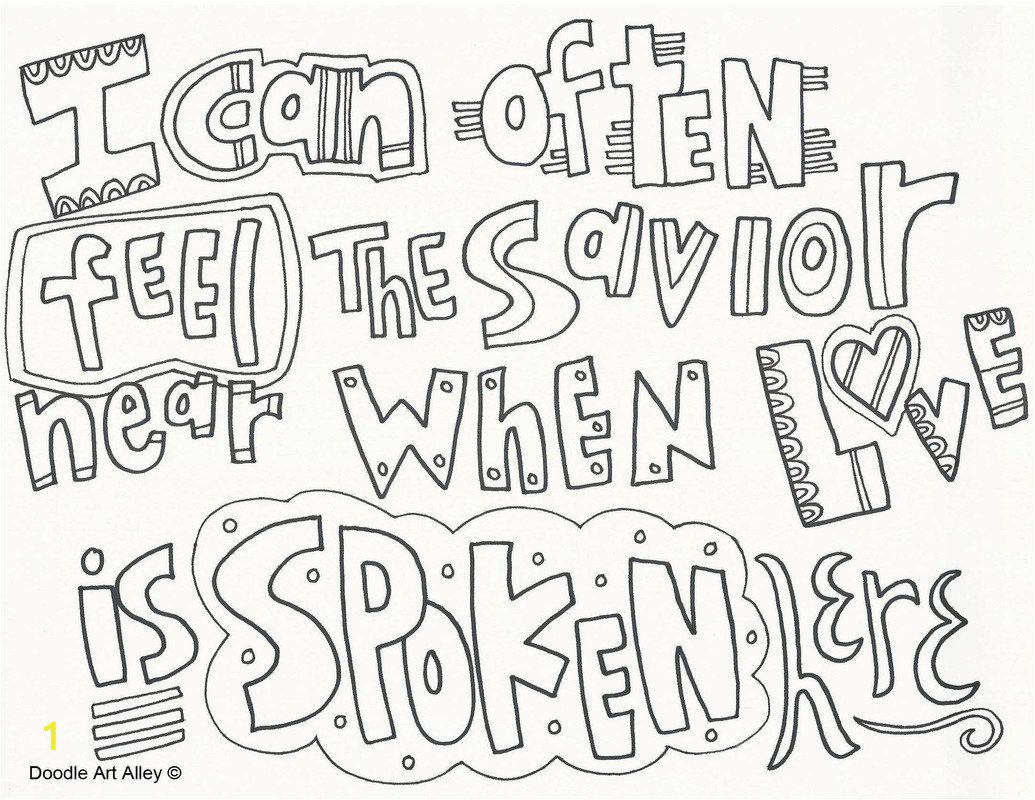 I can often
feel The Savior
near When Love
is Spoken here
1
Doodle Art Alley ©